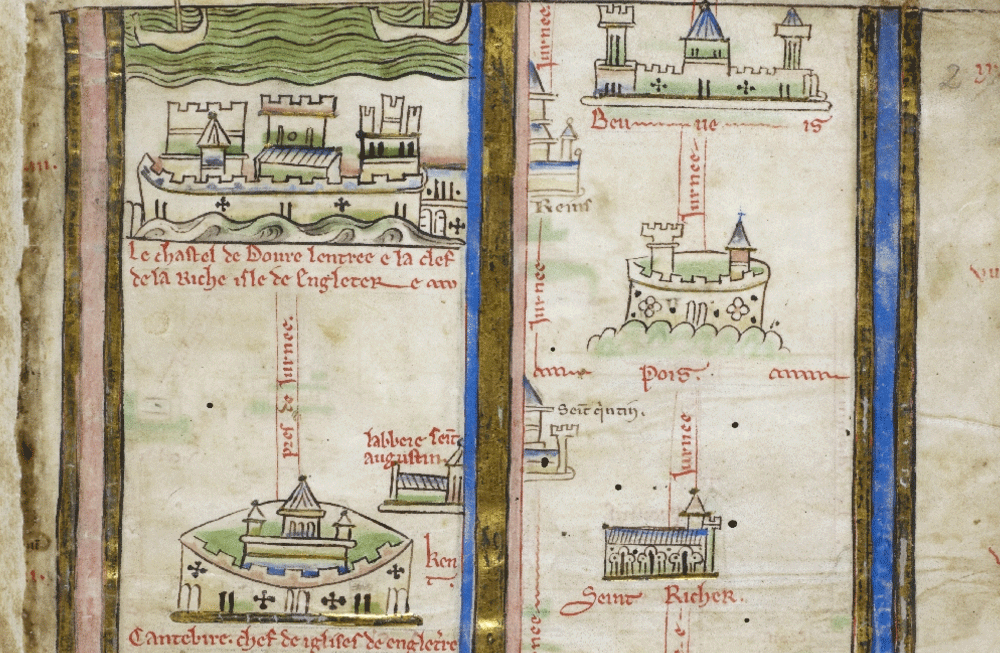 Le chastel de Doure lentree e la clef
de la Riche isle de Engletere
pres de Jurnee.
labbeie seit
augustin
ken
t.
Cantebire. chef de iglises de engletere
Jurnee
Beu ue is
Jurnee
Reins
Jurnee
Pois.
Seit q̃ntin.
Jurnee
Seint Richer.
nee
2